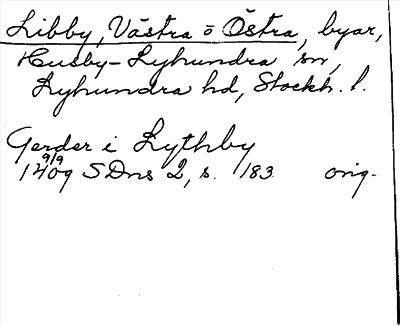 Libby, Västra o Östra, byar,
Husby-Lyhundra sn,
Lyhundra hd, Stockh. l.
Gerder i Lythby
9/9
1409 SDns 2, s. 183 orig.